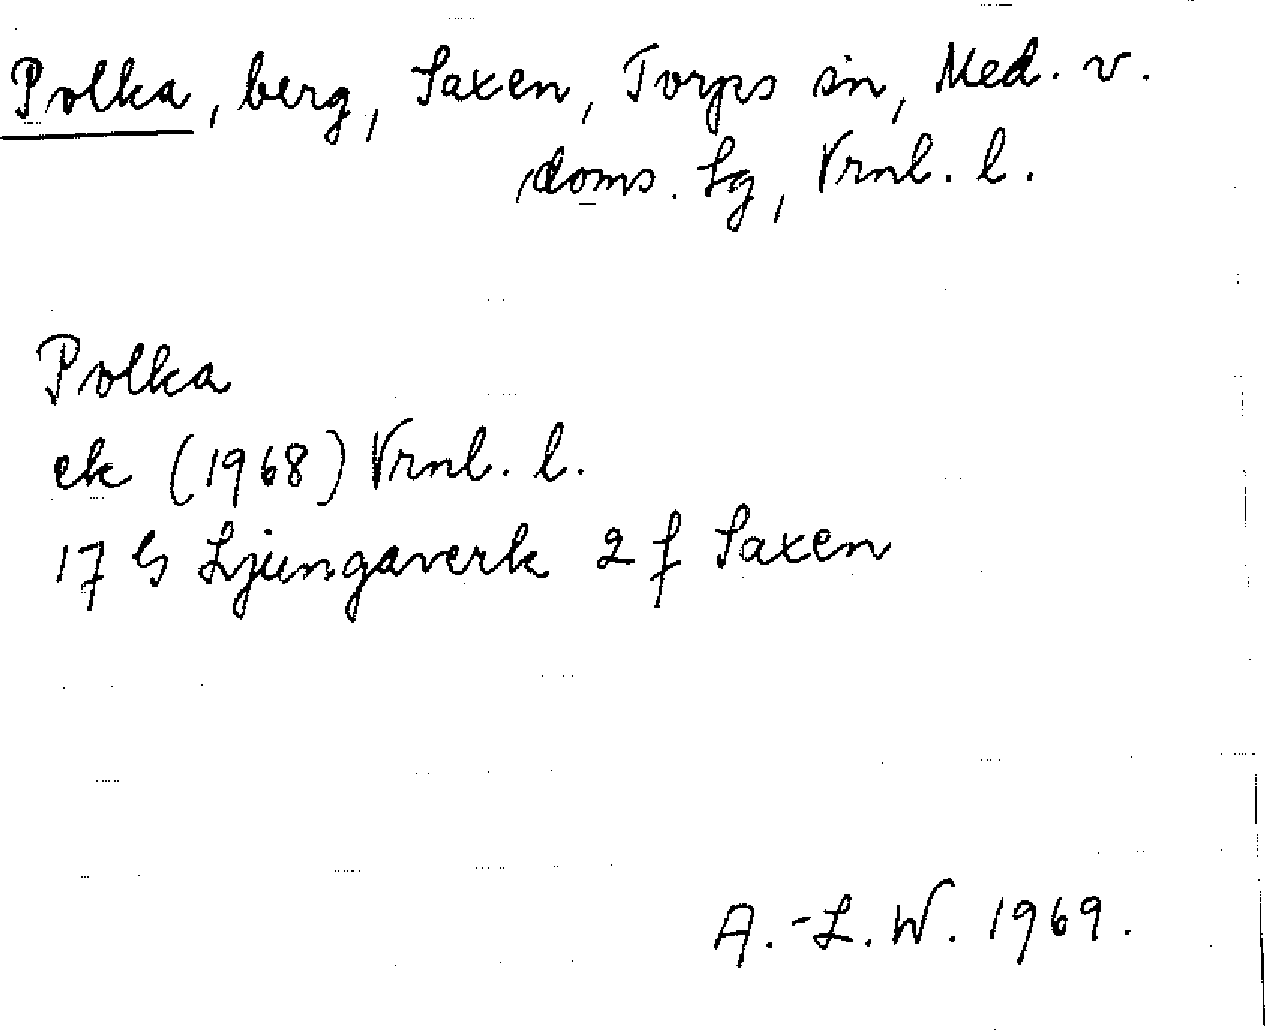 Polka, berg, Saxen, Torps sn, Med. v.
doms. Lg, Vrnl. l.
Polka
ek (1968) Vrnl. l.
17 G Ljungaverk 2 f Saxen
A.-L. W. 1969.